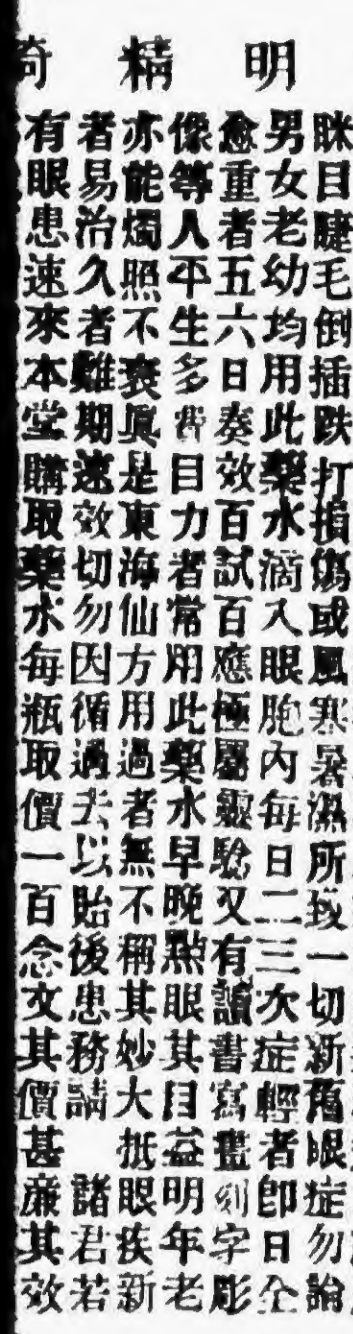 明　精　奇
眯目睫毛倒插跌打損傷或風寒暑濕所致一切新舊眼症勿論
男女老幼均用此藥水滴入眼胞內每日二三次症輕者卽日全
愈重者五六日奏效百試百應極屬靈騐又有讀書寫畫刻字彫
像等人平生多費目力者常用此藥水早晚點眼其目益明年老
亦能燭照不衰眞是東海仙方用過者無不稱其妙大抵眼疾新
者易治久者難期速效切勿因循過去以貽後患務請　諸君若
有眼患速來本堂購取藥水每瓶取價一百念文其價甚廉其效